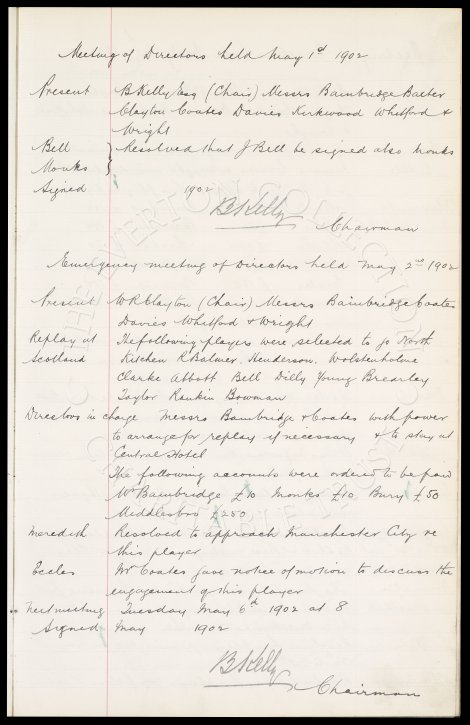 Meeting of Directors held May 1st 1902
Present B Kelly Esq (Chair) Messrs Bainbridge Baxter
Clayton Coates Davies Kirkwood Whitford &
Wright
Bell } Resolved that J Bell be signed also Monks
Monks
Signed 1902
B Kelly
Chairman
Emergency meeting of Directors held May 2nd 1902
Present W R Clayton (Chair) Messrs Bainbridge Coates
Davies Whitford & Wright
Replay at The following players were selected to go North
Scotland Kitchen R Balmer, Henderson, Wolstenholme
Clarke Abbott Bell Dilly Young Brearley
Taylor Rankin Bowman
Directors in charge Messrs Bainbridge & Coates with power
to arrange for replay if necessary & to stay at
Central Hotel
The following accounts were ordered to be paid
Mr Bainbridge £10 Monks £10 Bury £50
Middlesbro £250
Meredith Resolved to approach Manchester City re
this player
Eccles Mr Coates gave notice of motion to discuss the
engagement of this player
Next meeting Tuesday May 6th 1902 at 8
Signed May 1902
B Kelly
Chairman
THE EVERTON COLLECTION
CHARITABLE TRUST